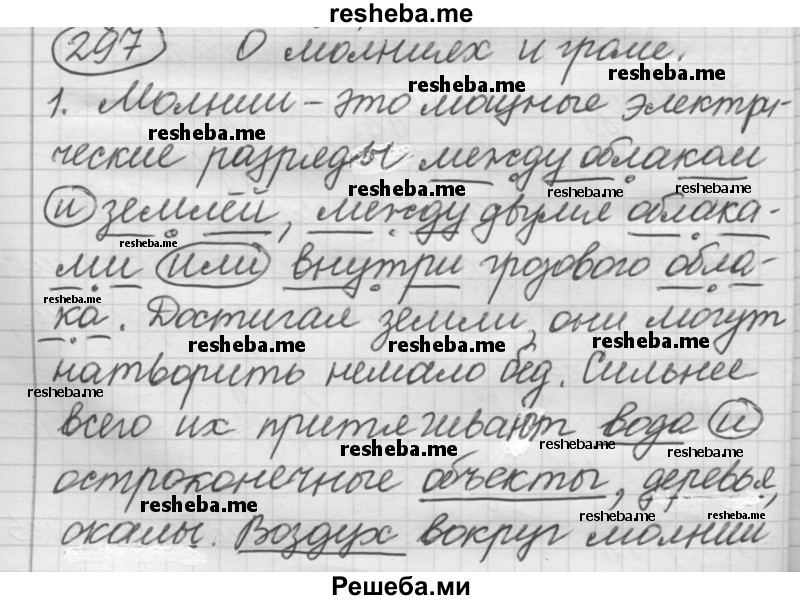 resheba.me
297 О молниях и громе.
resheba.me
resheba.me
1. Молнии – это мощные электри-
resheba.me
ческие разряды между облаком
resheba.me resheba.me
и землёй, между двумя облака-
resheba.me
ми или внутри грозового обла-
resheba.me
ка. Достигая земли, они могут
resheba.me resheba.me
натворить немало бед. Сильнее
resheba.me
всего их притягивают вода и
resheba.me resheba.me resheba.me
остроконечные объекты, деревья,
resheba.me resheba.me resheba.me
скалы. Воздух вокруг молнии
Решеба.ми